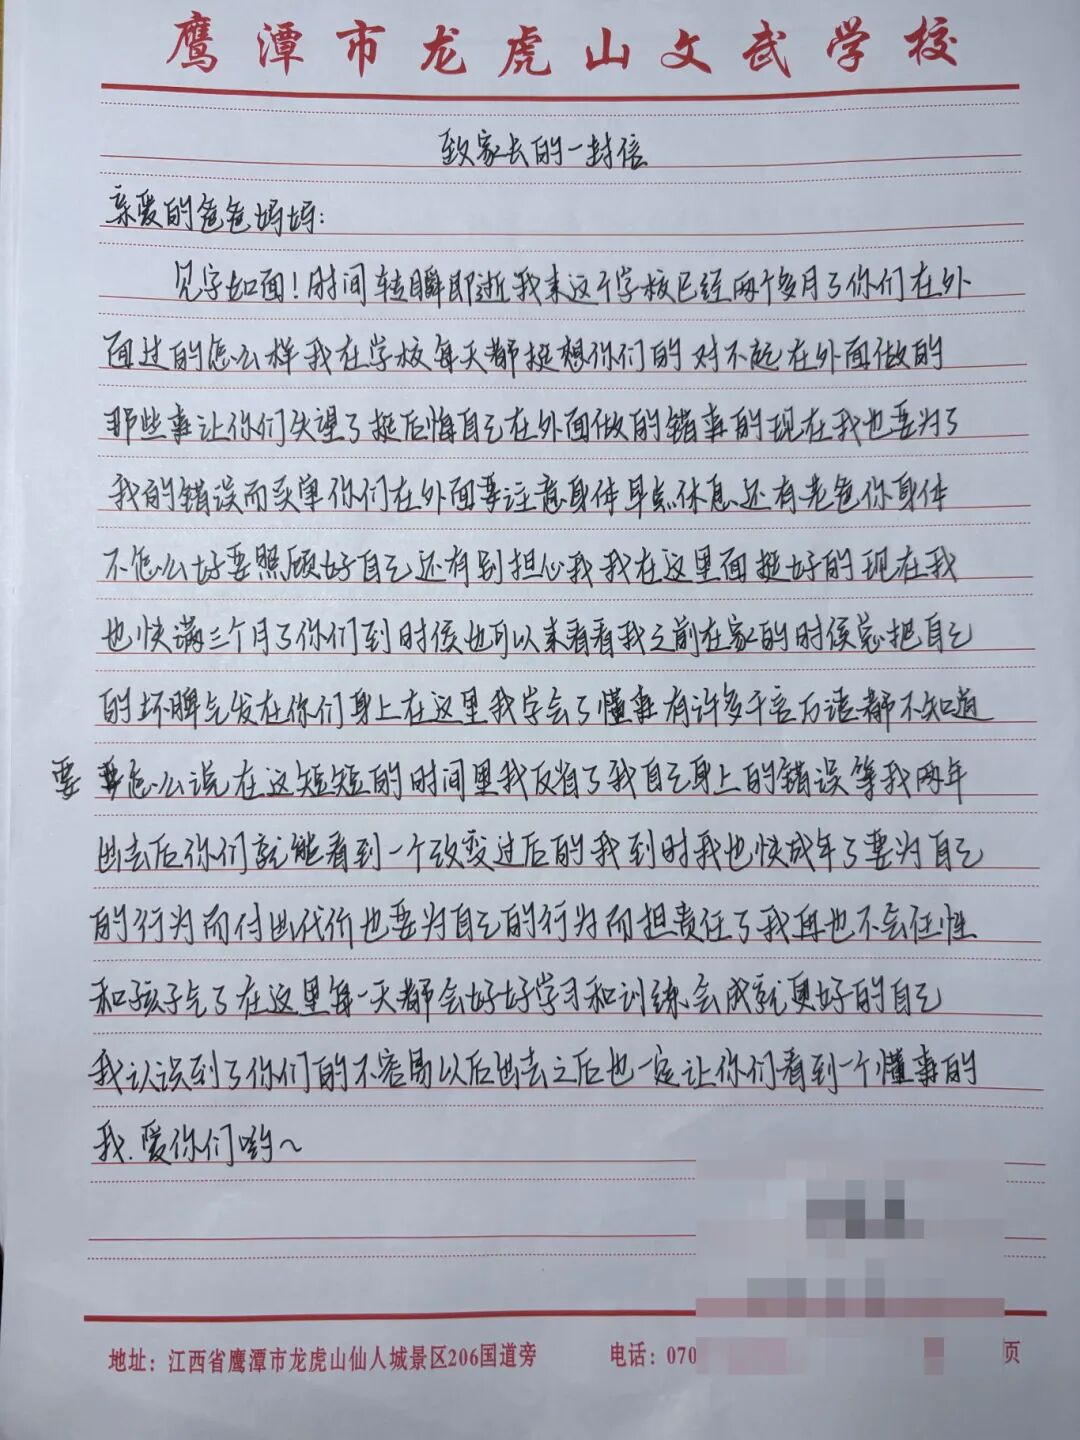 鹰潭市龙虎山文武学校
致家长的一封信
亲爱的爸爸妈妈:
见字如面!时间转瞬即逝我来这个学校已经两个多月了你们在外
面过的怎么样我在学校每天都挺想你们的对不起在外面做的
那些事让你们失望了挺后悔自己在外面做的错事的现在我也要为了
我的错误而买单你们在外面要注意身体早点休息还有老爸你身体
不怎么好要照顾好自己还有别担心我我在这里面挺好的现在我
也快满三个月了你们到时侯也可以来看看我之前在家的时侯总把自己
的坏脾气发在你们身上在这里我学会了懂事有许多千言万语都不知道
要怎么说在这短短的时间里我反省了我自己身上的错误等我两年
出去后你们就能看到一个改变过后的我到时我也快成年了要为自己
的行为而付出代价也要为自己的行为而担责任了我再也不会任性
和孩子气了在这里每一天都会好好学习和训练会成就更好的自己
我认识到了你们的不容易以后出去之后也一定让你们看到一个懂事的
我.爱你们哟~
地址:江西省鹰潭市龙虎山仙人城景区206国道旁 电话:070 页